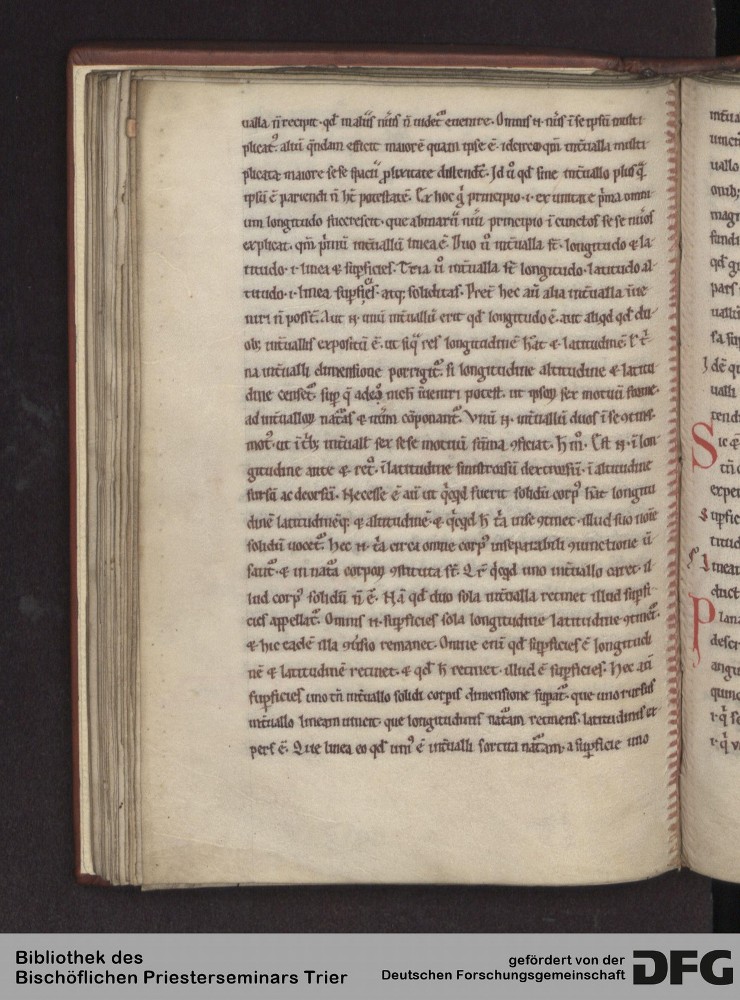 ualla ñ recipit · qđ in aliis nũis ñ uidet᷑ euenire. Omnis n̄. nũs ĩ se ipsũ multi
plicat᷒. aliũ q̃ndam efficit maiorẽ quam ipse ẽ · idcirco qm̃ int̃ualla multi
plicata maiore sese spacii ꝓlixitate distendẽt. Id ů qđ sine int̃uallo plus q̃
ipsũ ẽ pariendi ñ ht̃ potestatẽ. Ex hoc g̊ principio · i · ex unitate p̃ma omni
um longitudo succrescit · que a binarii nũi principio ĩ cunctos sese nũos
explicat · qm̃ p̃mũ int̃uallũ linea ẽ. Duo ů int̃ualla st̃ · longitudo & la
titudo · i · linea & suꝑficies. Tria ů int̃ualla st̃ longitudo · latitudo al
titudo · i · linea suꝑficies atq; soliditas. Pret̃ hec aũ alia int̃ualla ĩue
niri ñ posst̃. Aut n̄. unũ int̃uallũ erit qđ longitudo ẽ · aut aliqđ qđ du
ob; int̃uallis expositũ ẽ · ut siq̃ res longitudinẽ h̃at & latitudinẽ. ł t̃
na int̃ualli dimensione porrigit᷑. si longitudine altitudine & latitu
dine censet᷑. suꝑ q̃ adeo nich ĩueniri potest. ut ipsoꝝ sex motuũ forme
ad int̃ualloꝝ nat̃as & nũm cõponant᷑. Vnũ n̄. int̃uallũ duos ĩ se ꝯtinet
mot᷒. ut ĩ t̃b; int̃uall᷒ sex sese motuũ sũma ꝯficiat · h̃ m̊. Est n̄. ĩ lon
gitudine ante & ret᷑. ĩ latitudine sinistrorsũ dextrorsũ. ĩ altitudine
sursũ ac deorsũ. Necesse ẽ aũ ut q̃cqđ fuerit solidũ corp᷒ h̃at longitu
dinẽ latitudinẽq; & altitudinẽ · & q̃cqđ h̃ t̃a in se ꝯtinet · illud suo noĩe
solidũ uocet᷑. Hec n̄. t̃a circa omne corp᷒ inseparabili ꝯiunctione ů
sant᷑. & in nat̃a corpoꝝ ꝯstituta st̃. Qr̃ q̃cqđ uno int̃uallo caret · il
lud corp᷒ solidũ ñ ẽ. Nã qđ duo sola int̃ualla retinet illud suꝑfi
cies appellat᷑. Omnis n̄. suꝑficies sola longitudine latitudine ꝯtinet᷑.
& hic eadẽ illa ꝯů̃sio remanet. Omne enĩ qđ suꝑficies ẽ longitudi
nẽ & latitudinẽ retinet · & qđ h̃ retinet · illud ẽ suꝑficies. Hec aũ
suꝑficies uno tñ int̃uallo solidi corꝑis dimensione suꝑat᷑ · que uno rursus
int̃uallo lineam uincit · que longitudinis nat̃am retinens · latitudinis ex
pers ẽ. Que linea eo qđ uni᷒ ẽ int̃ualli sortita nat̃am · a suꝑficie uno
Bibliothek des
Bischöflichen Priesterseminars Trier
gefördert von der
Deutschen Forschungsgemeinschaft
DFG